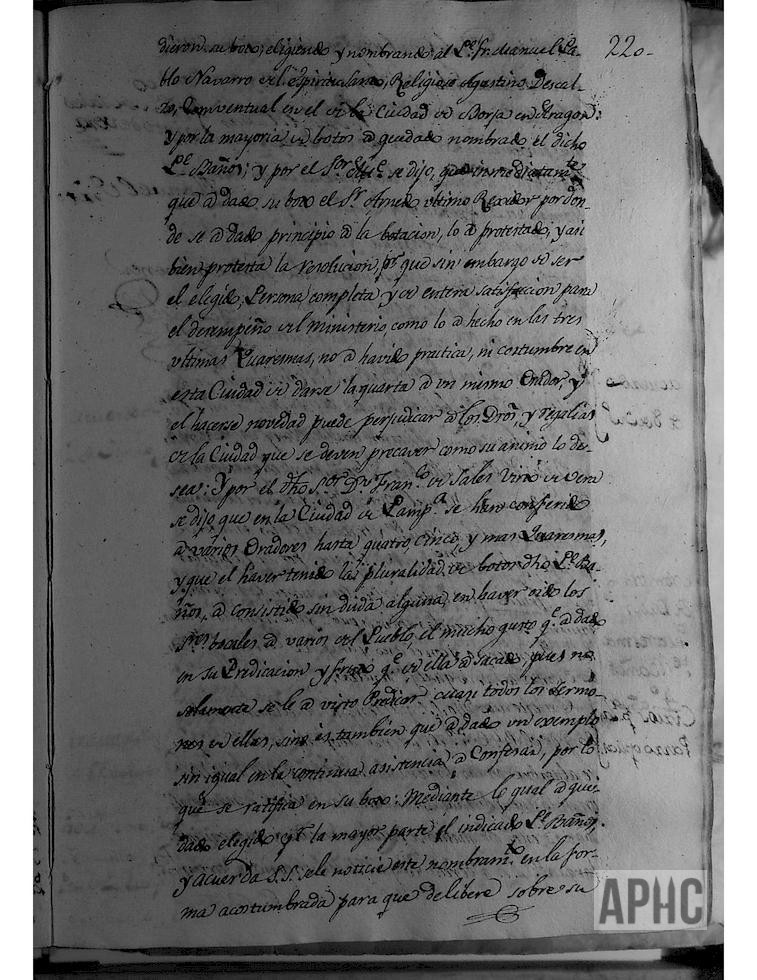 220.
dieron su boto, eligiendo y nombrando al Pe. fr. Manuel Pa-
blo Navarro del espiritu Santo, Religioso Agustino Descal-
zo, Conventual en el de la Ciudad de Borja en Aragon:
y por la mayoria de botos a quedado nombrado el dicho
Pe. Baños; y por el Sor. se dijo, que inmediatamte.
que a dado su boto el Sr. Arnedo ultimo Rexidor por don-
de se a dado principio a la botacion, lo a protestado, y asi
bien protesta la resolucion, pr. que sin embargo de ser
el elegido, Persona completa y de entera satisfacion para
el desempeño del ministerio, como lo a hecho en las tres
vltimas Quaresmas, no a havido practica, ni costumbre en
esta Ciudad de darse la quarta a vn mismo Orador, y
el hacerse novedad puede perjudicar a los Dros, y regalias
de la Ciudad que se deven precaver como su animo lo de-
sea: Y por el dho Sor. Dn. Franco. de Sales Virto de Vera
se dijo que en la Ciudad de Pampa. se han conferido
a varios Oradores hasta quatro, cinco, y mas Quaresmas,
y que el haver tenido la pluralidad de botos dho Pe. Ba-
ños, a consistido sin duda alguna, en haver oido los
Sres. bocales a varios del Pueblo el mucho gusto qe. a dado
en su Predicacion y fruto qe. de ella a sacado, pues no
solamente se le a visto Predicar cuasi todos los Sermo-
nes de ellas, sino es tambien que a dado vn exemplo
sin igual en la continua asistencia a Confesar, por lo
que se ratifica en su boto: Mediante lo qual a que-
dado elegido pr. la mayor parte el indicado Pe. Baños,
y acuerda S.S. se le noticie este nombramto. en la for-
ma acostumbrada para que delibere sobre su
APHC